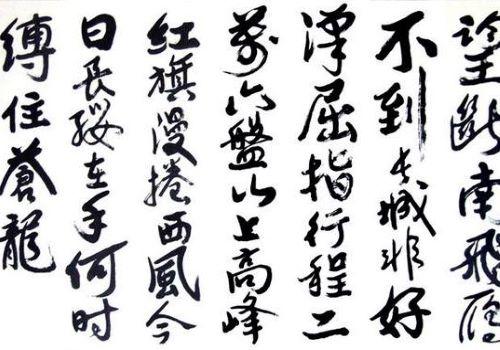 望斷南飛雁
不到長城非好
漢屈指行程二
萬六盤山上高峰
紅旗漫捲西風今
日長纓在手何时
縛住蒼龍